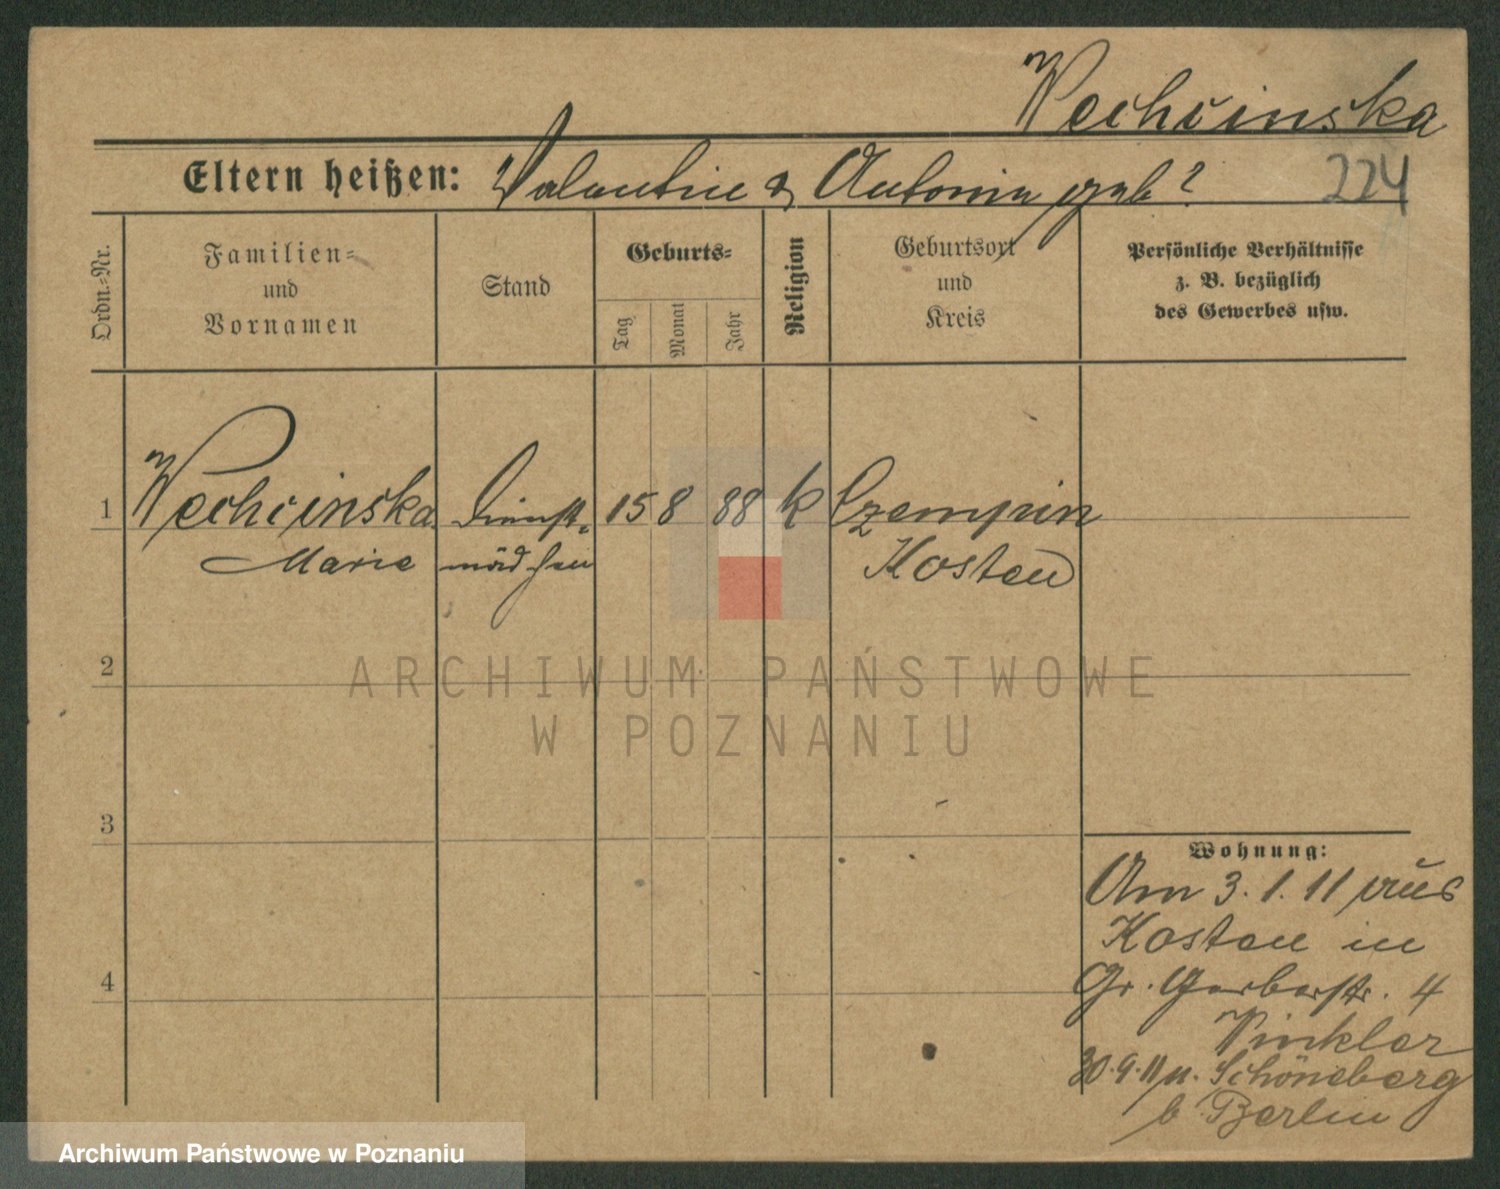 Wechcinska
Eltern heißen: Valentin & Antonin geb?
224
Ordn.-Nr.
Familien-
und
Vornamen
Stand
Geburts-
Tag
Monat
Jahr
Religion
Geburtsort
und
Kreis
Persönliche Verhältnisse
z. B. bezüglich
des Gewerbes usw.
1 Wechcinska Dienst- 15 8 88 k Czempin
Marie mädchen Kosten
2
3
4
Wohnung:
Am 3.1.11 aus
Kosten in
Gr. Gerberstr. 4
Winkler
30.9.11 n. Schöneberg
b. Berlin
ARCHIWUM PAŃSTWOWE
W POZNANIU
Archiwum Państwowe w Poznaniu